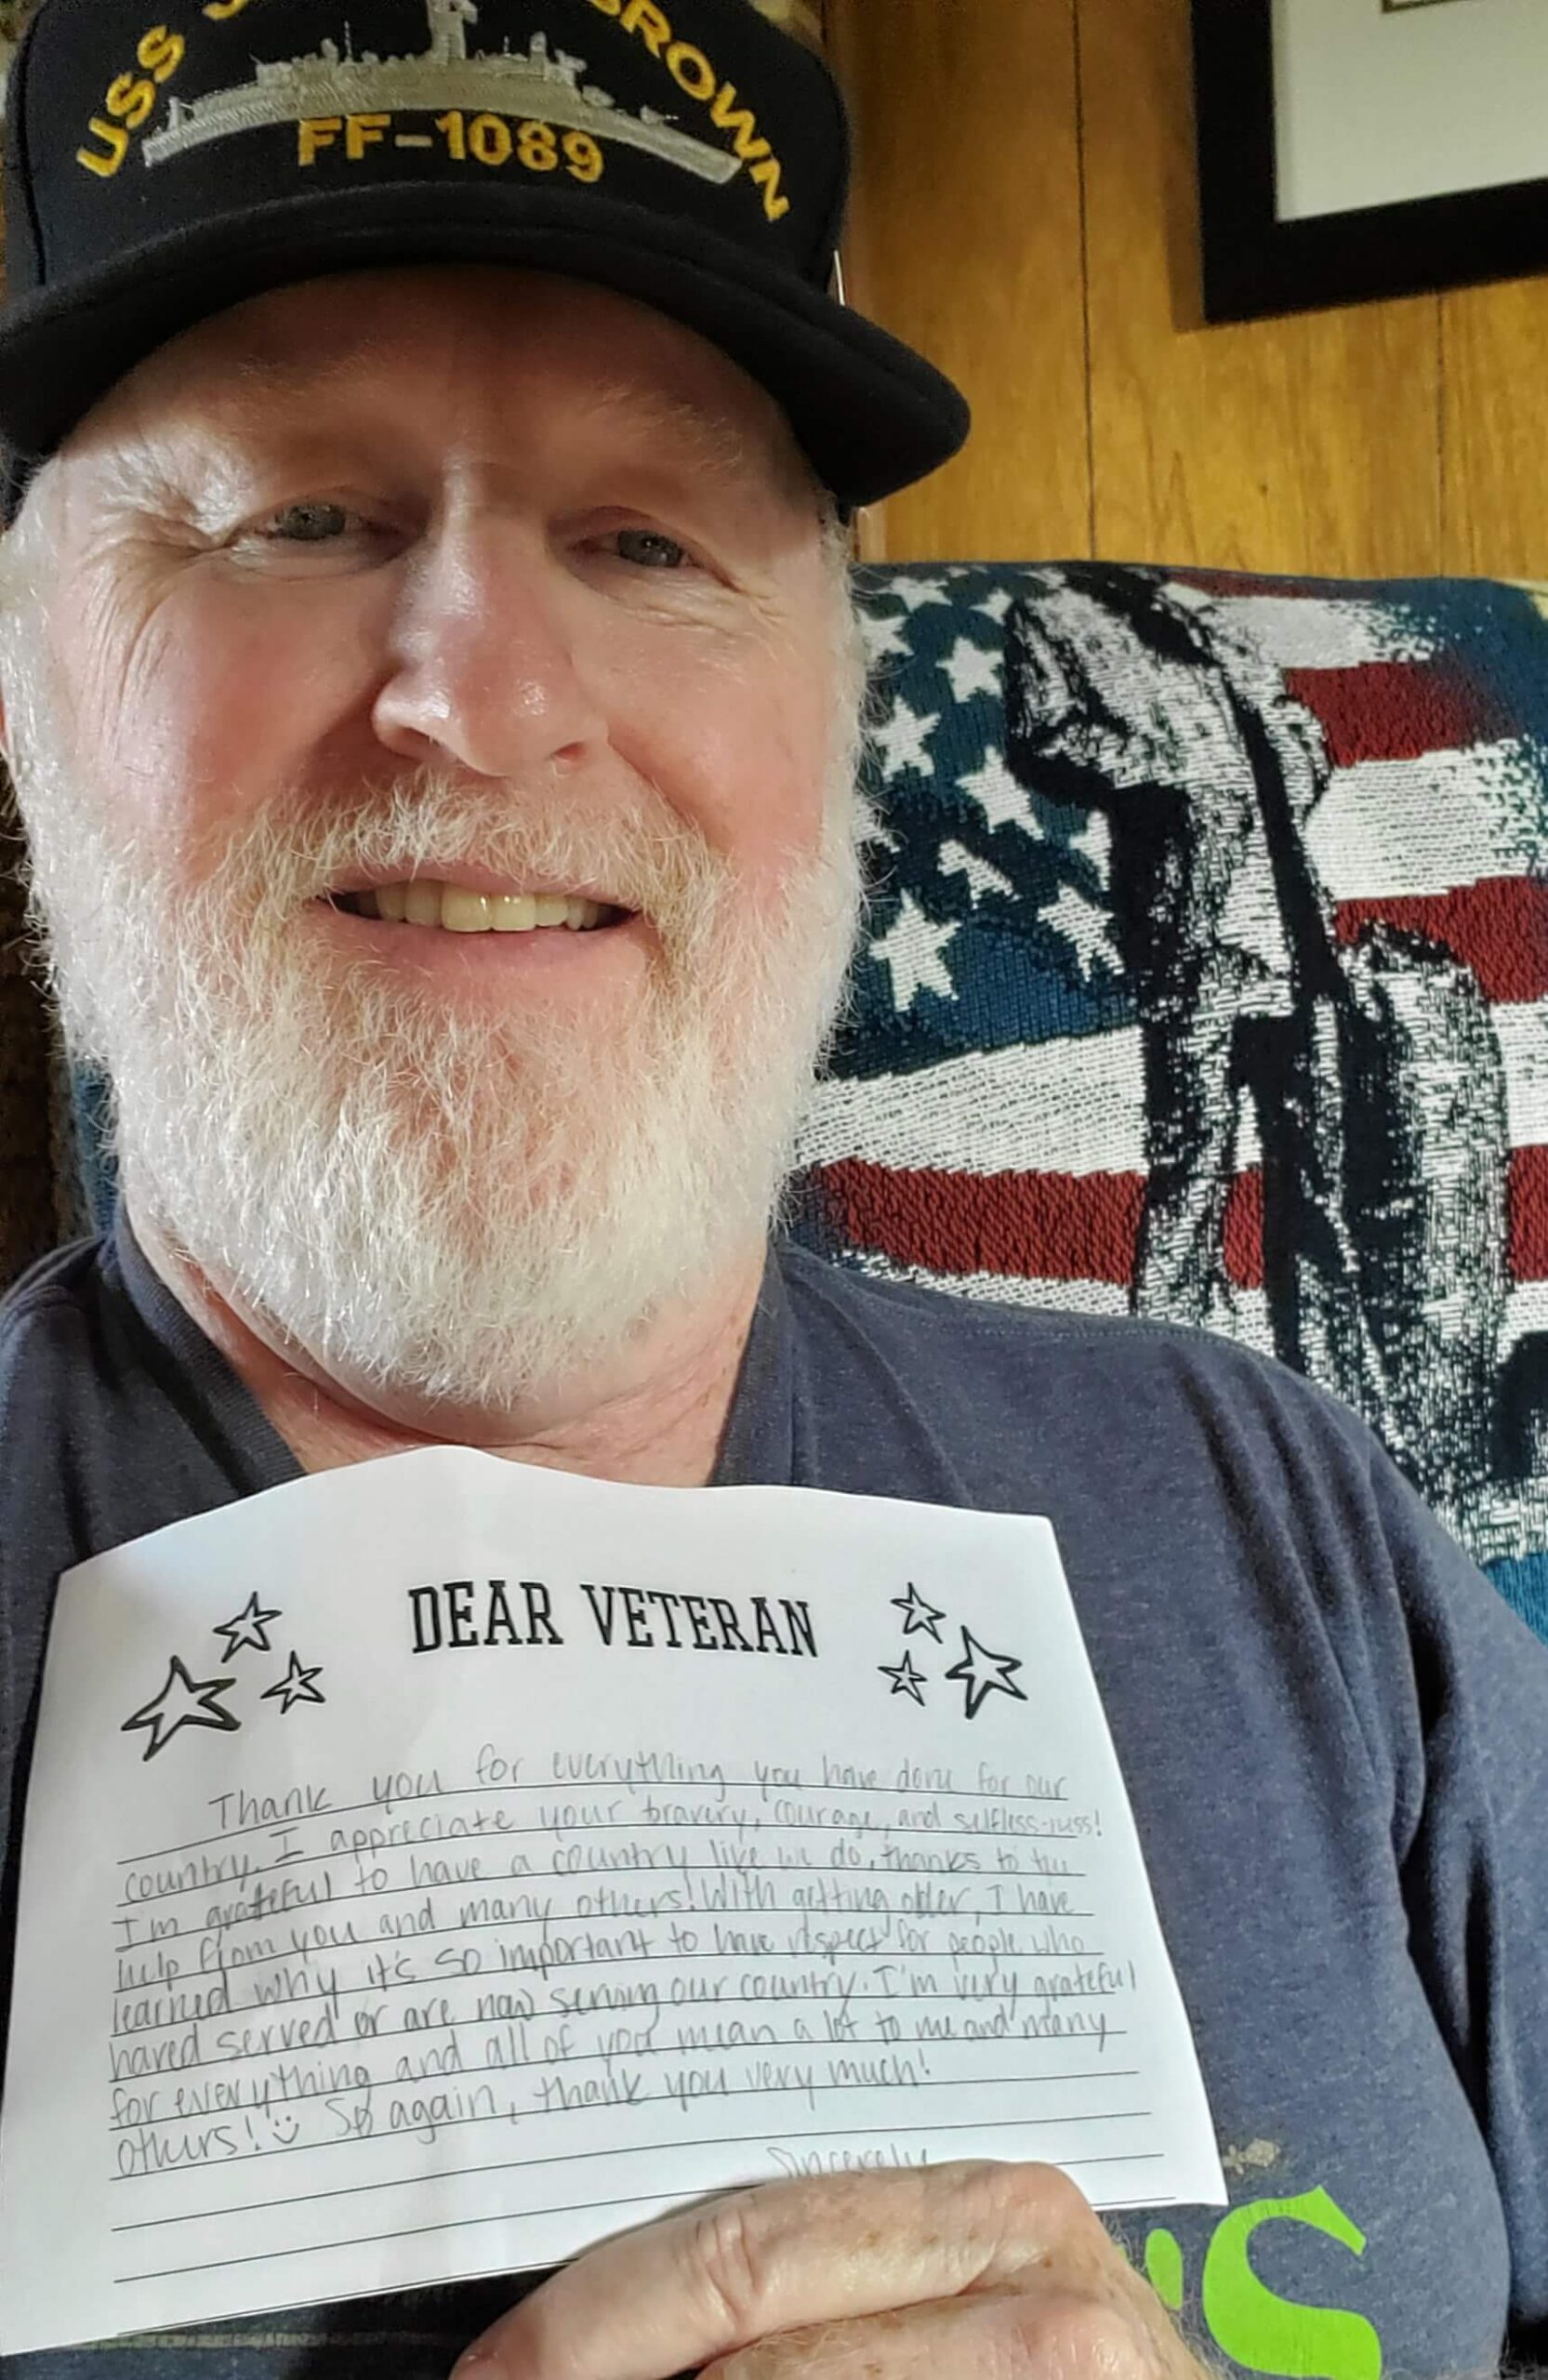 USS BROWN
FF-1089
DEAR VETERAN
Thank you for everything you have done for our
country. I appreciate your bravery, courage, and selfless-ness!
I'm grateful to have a country like we do, thanks to the
help from you and many others! With getting older, I have
learned why it's so important to have respect for people who
haved served or are now serving our country. I'm very grateful
for everything and all of you mean a lot to me and many
others! So again, thank you very much!
Sincerely
'S